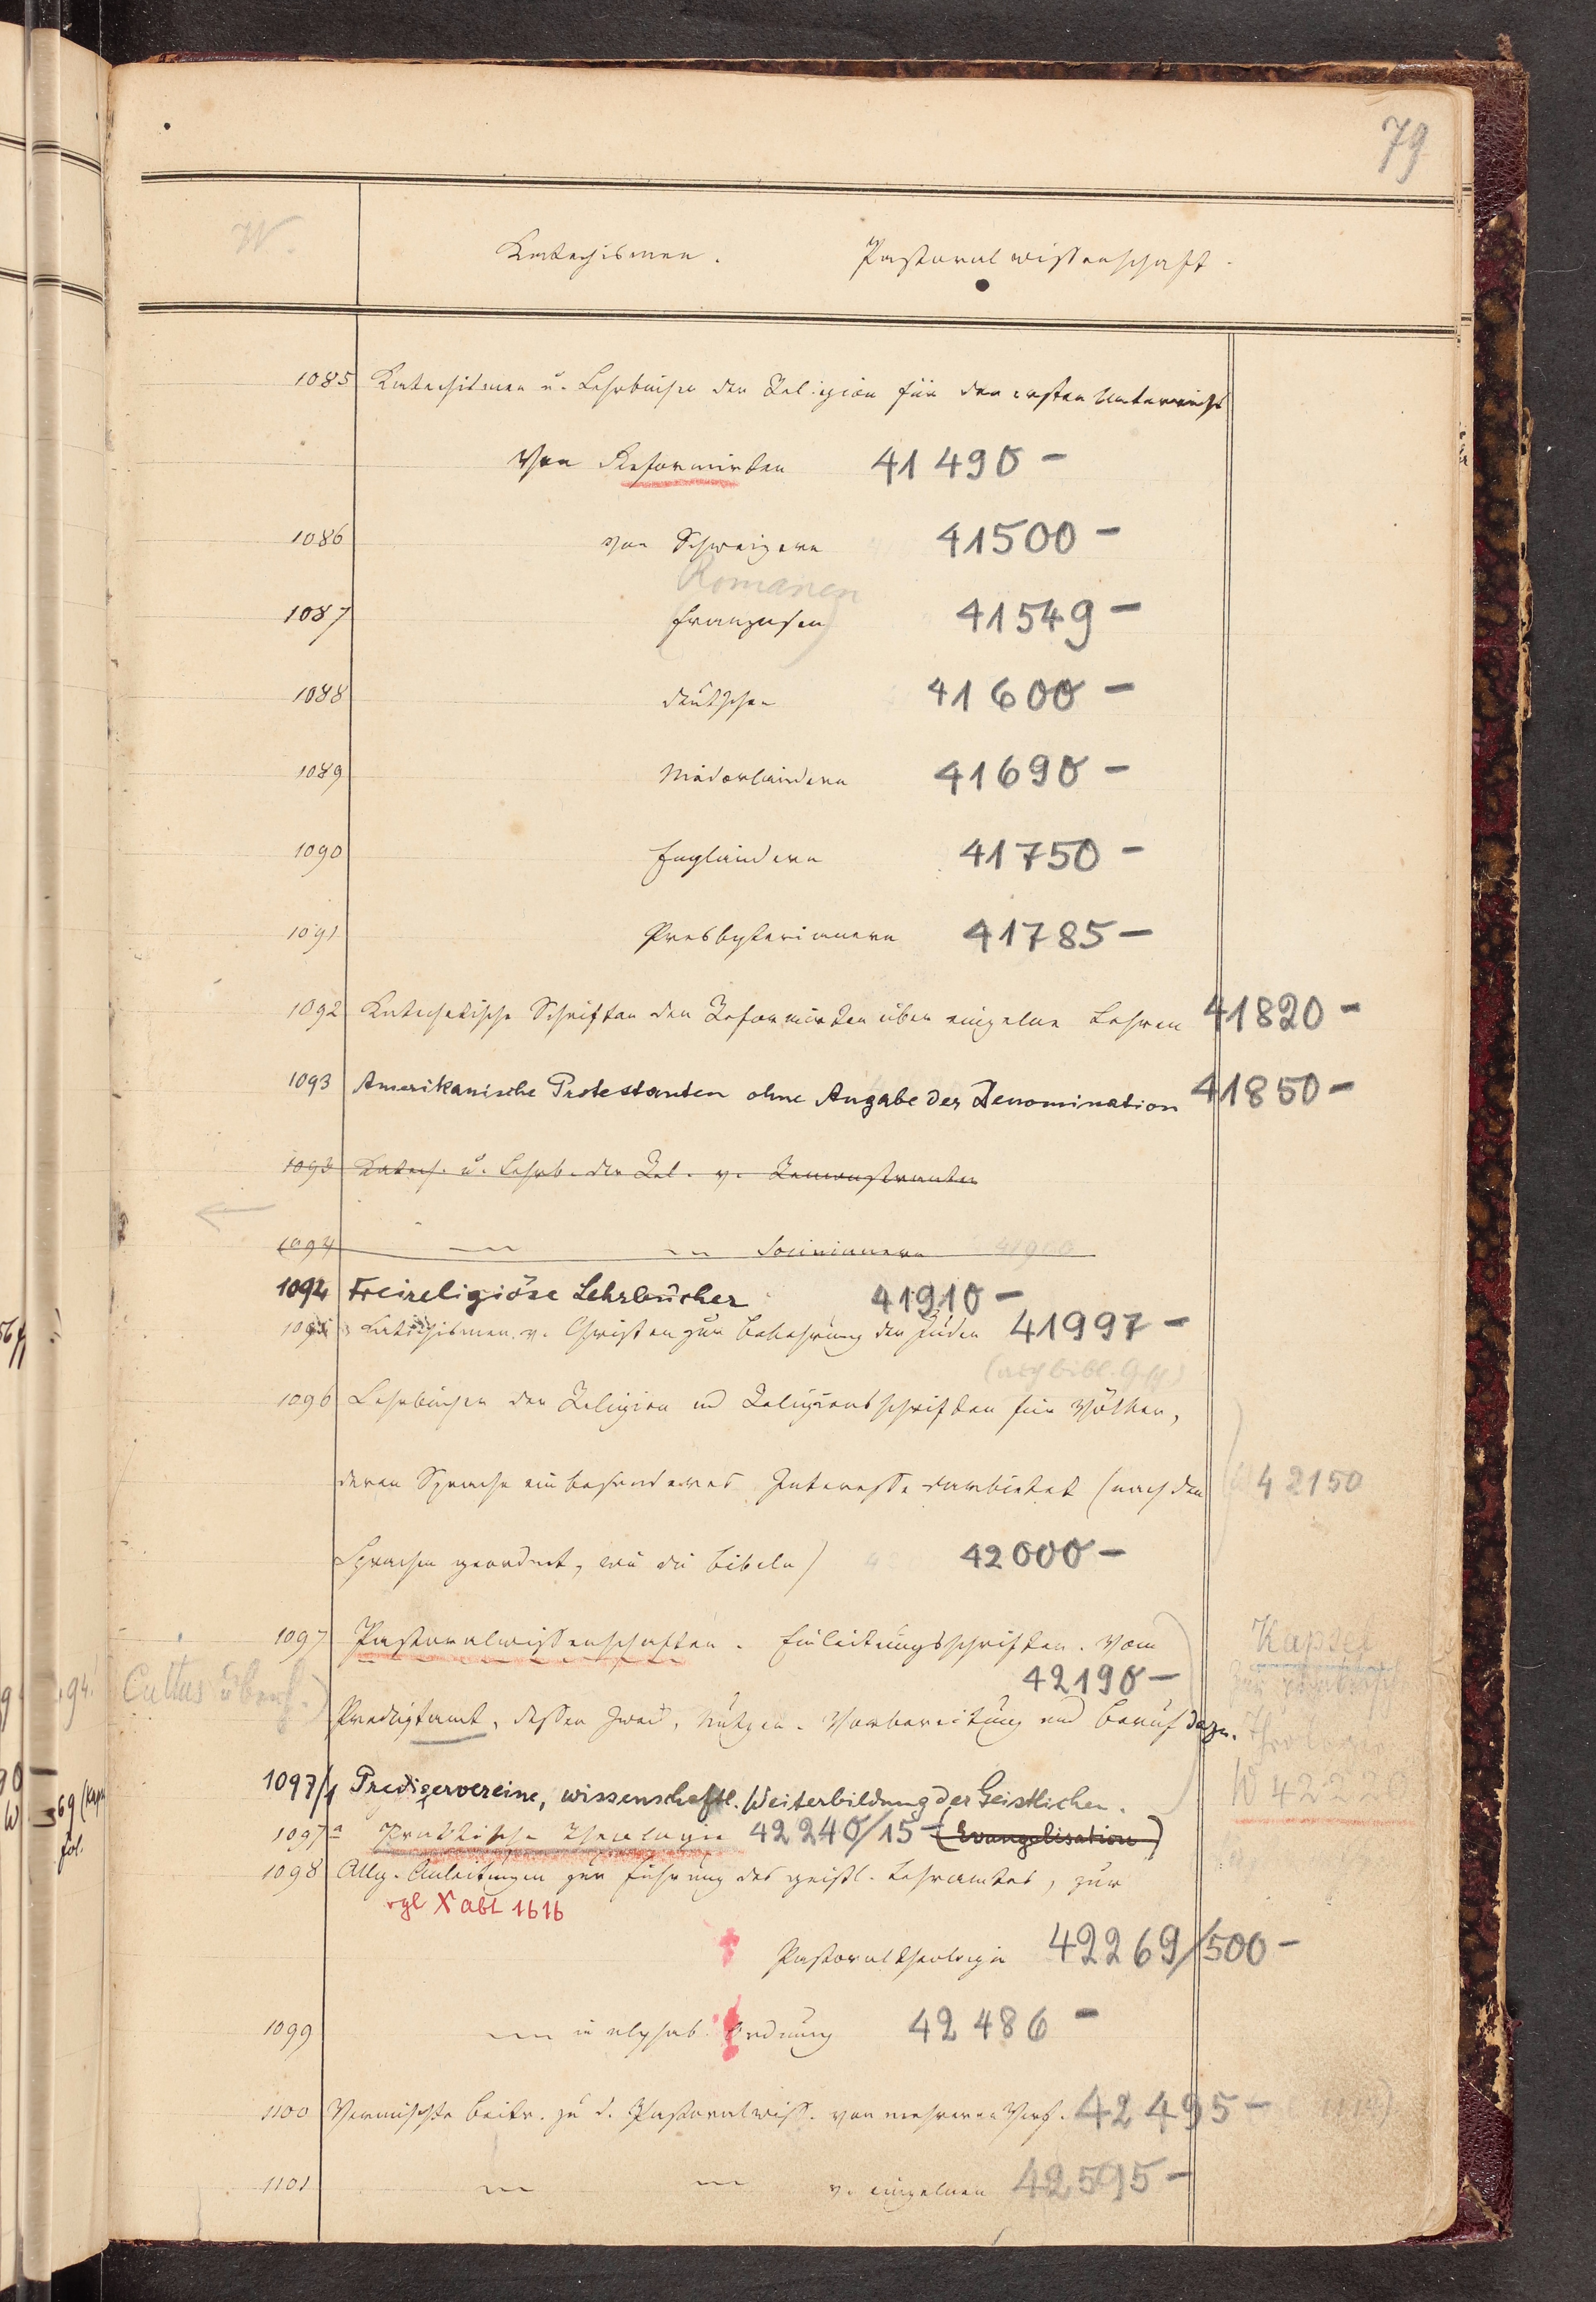 79
W.
Katechismen. Pastoralwissenschaft.
1085 Katechismen u. Lehrbücher der Religion für den ersten Unterricht
Von Reformirten 41490 –
1086 von Schweizern 41500 –
Romanen
1087 (Franzosen) 41549 –
1088 Deutschen 41600 –
1089 Niederländern 41690 –
1090 Engländern 41750 –
1091 Presbyterianern 41785 –
1092 Katechetische Schriften der Reformirten über einzelne Lehren 41820 –
1093 Amerikanische Protestanten ohne Angabe der Denomination 41850 –
1093 Katech. u. Lehrb. der Rel. v. Remonstranten
1094 — — Socinianern 41900
1094 Freireligiöse Lehrbücher 41910 –
1095 Katechismen v. Christen zur Bekehrung der Juden 41997 –
(auch bibl. Gesch.)
1096 Lehrbücher der Religion und Religionsschriften für Völker,
deren Sprache ein besonderes Interesse darbietet (nach den 42150
Sprachen geordnet, wie die Bibeln) 42000 –
1097 Pastoralwissenschaften. Einleitungsschriften. Vom Kapsel
42190 – zur praktisch
Cultus überh.) Predigtamt, dessen Zweck, Nutzen. Vorbereitung und Beruf dazu. Theologie
1097/1 Predigervereine, wissenschaftl. Weiterbildung der Geistlichen. W 42220
1097a Praktische Theologie 42240/15 – (Evangelisation)
1098 Allg. Anleitungen zur Führung des geistl. Lehramtes, zur
vgl X abt 1616
Pastoraltheologie 42269/500 –
1099 — in alphab. Ordnung 42486 –
1100 Vermischte Beitr. zu d. Pastoralwiss. von mehreren Verf. 42495 –
1101 — — v. einzelnen 42595 –